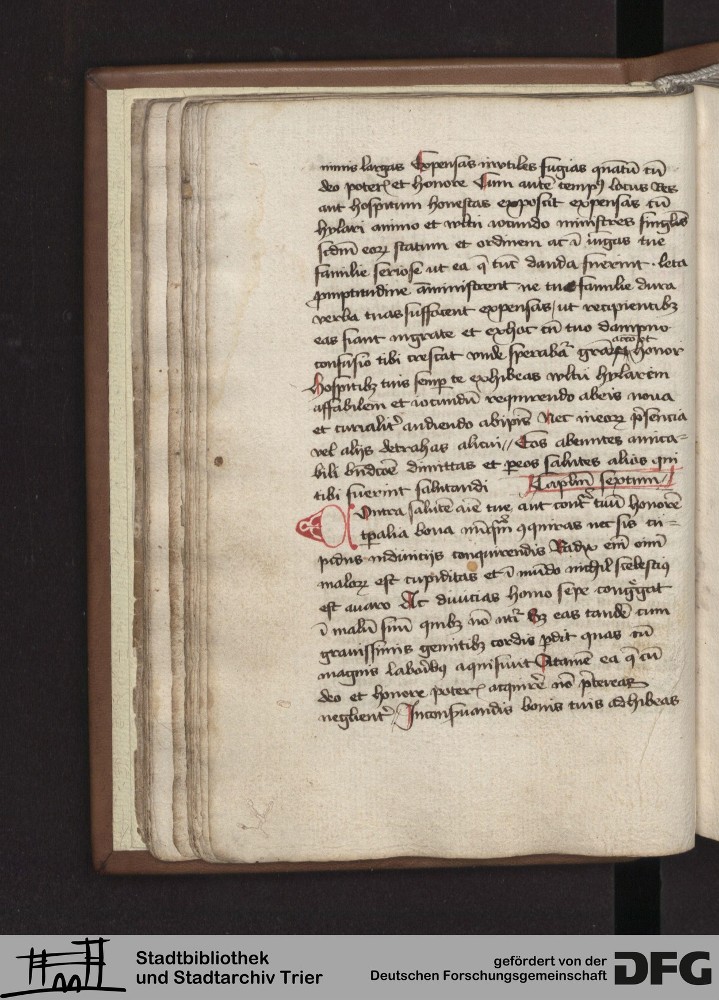 nimis largas Expensas inutiles fugias quātū cū
deo poteris et honore Cum autē tempus locus Res
aut hospitum honestas exposcit expensas cū
hylari animo et vultu iocundo ministres singulis
scdm̄ eorꝝ statum et ordinem ac ī iūgas tue
familie seriose ut ea q̄ tūc danda fuerint . leta
ꝓmptitudine āministrent ne tue familie dura
verba tuas suffocent expensas / ut recipientibꝫ
eas fiant ingrate et exhoc cū tuo dampno
confusio tibi crescat vnde sperabāt honor
Hospitibꝫ tuis semp te exhibeas vultū hylarem
affabilem et iocundū requirendo abeis noua
et curialit̄ audiendo abipīs Nec ineorꝝ p̄sencia
vel alijs detrahas alicui // Eos abeuntes amica-
bili bn̄dcōe dimittas et ꝑeos salutes alios qui
tibi fuerint salutandi Caplm̄ septim̄ //
Contra salutē aīe tue aut contͣ tuū honorē
tꝑalia bona nūꝗm̄ ꝯquiras nec sis cu=
pidus indiuicijs conquirendis Radix em̄ oīm
malorꝝ est cupiditas et ī mūdo nichil scelestiꝰ
est auaro Ac diuicias homo sepe congͤgat
ī malū suū quibꝫ nō utit̄ Sꝫ eas tandē cum
grauissimis gemitibꝫ cordis ꝑdit quas cū
magnis laboribꝰ aquisiuit Attamē ea q̄ cū
deo et honore poteris acquirē nō p̄tereas
neglient̄ / Inconseruandis bonis tuis adhibeas
Stadtbibliothek
und Stadtarchiv Trier
gefördert von der
Deutschen Forschungsgemeinschaft
DFG